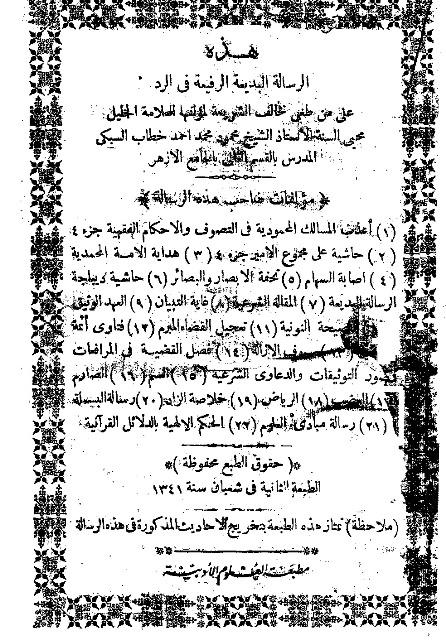 هذه
الرسالة البديعة الرفيعة فى الرد
على من طغى فخالف الشريعة لمؤلفها العلامة الجليل
محيى السنة الاستاذ الشيخ محمود محمد احمد خطاب السبكى
المدرس بالقسم العالى بالجامع الازهر
﴿ مؤلفات صاحب هذه الرسالة ﴾
(١) أعذب المسالك المحمودية فى التصوف والاحكام الفقهية جزء ٤
(٢) حاشية على مجموع الامير جزء ٤ (٣) هداية الامة المحمدية
(٤) اصابة السهام (٥) تحفة الابصار والبصائر (٦) حاشية ديباجة
الرسالة البديعة (٧) المقالة الشرعية (٨) غاية التبيان (٩) العهد الوثيق
النصيحة النونية (١١) تعجيل القضاء المبرم (١٢) فتاوى أئمة
(١٤) فصل القضية فى المرافعات
وصور التوثيقات والدعاوى الشرعية (١٥) السم (١٦) الصارم
(١٧) (١٨) الرياض (١٩) خلاصة الزاد (٢٠) رسالة البسملة
(٢١) رسالة مبادئ العلوم (٢٢) الحكم الالهية بالدلائل القرآنية
*( حقوق الطبع محفوظة )*
الطبعة الثانية فى شعبان سنة ١٣٤١
(ملاحظة) تمتاز هذه الطبعة بتخريج الاحاديث المذكورة فى هذه الرسالة
مطبعة العلوم الأدبية